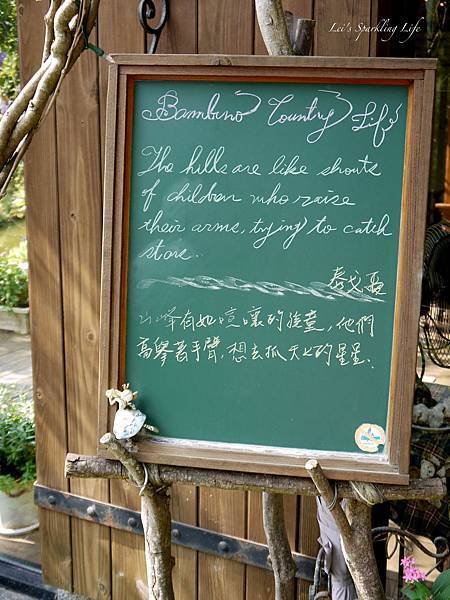 Lei's Sparkling Life
Bambino Country Life
The hills are like shouts
of children who raise
their arms, trying to catch
stars..
泰戈爾
山峰有如喧嚷的孩童，他們
高舉著手臂，想去抓天上的星星.